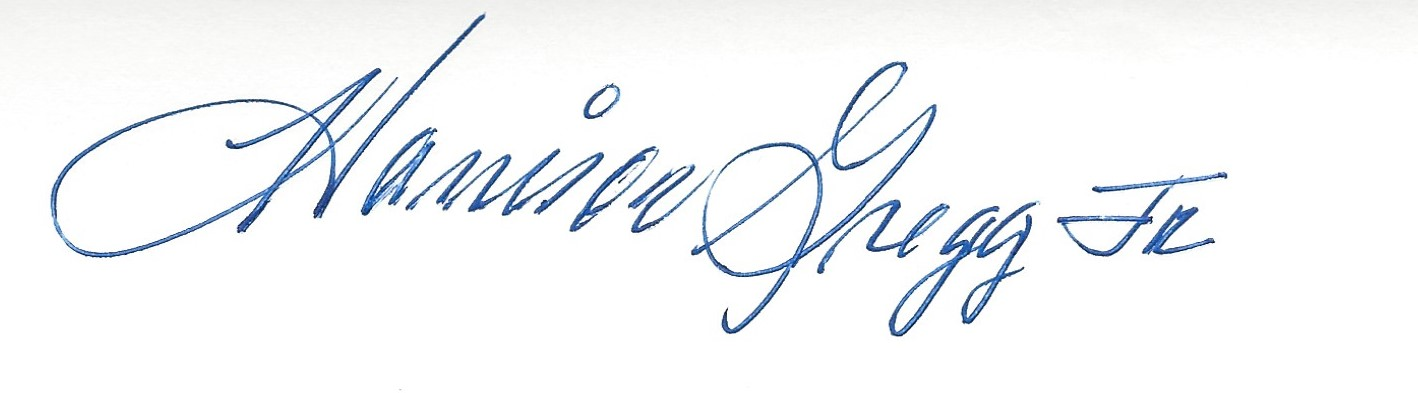 Harrison Gregg Jr